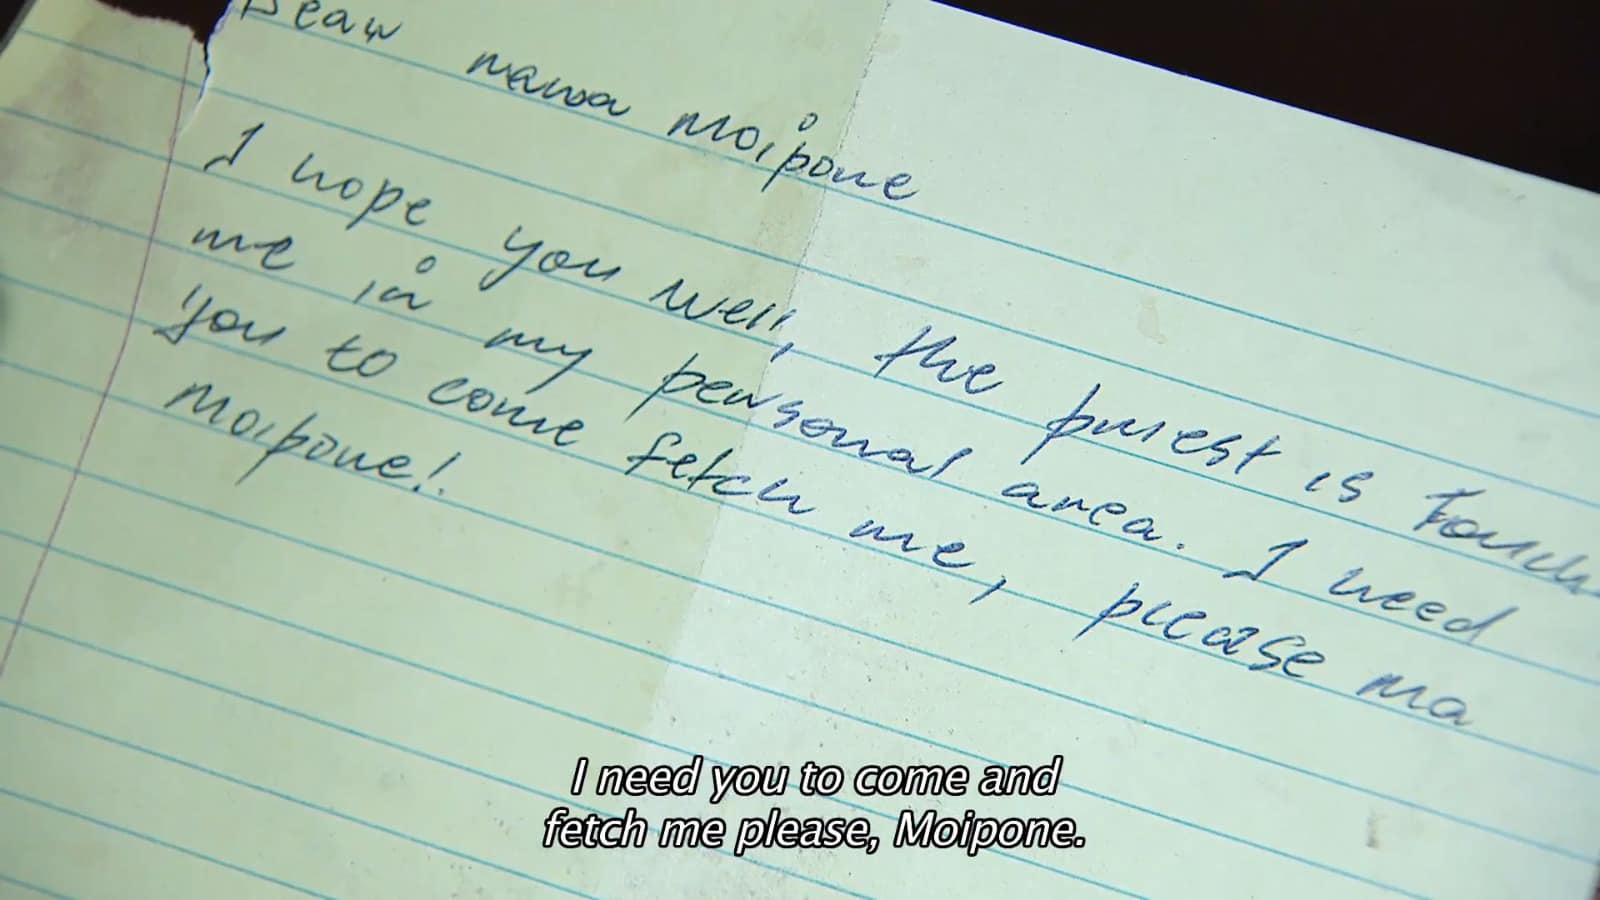 Dear mama moipone
I hope you well, the priest is touch
me in my personal area. I need
you to come fetch me, please ma
moipone!.
I need you to come and
fetch me please, Moipone.